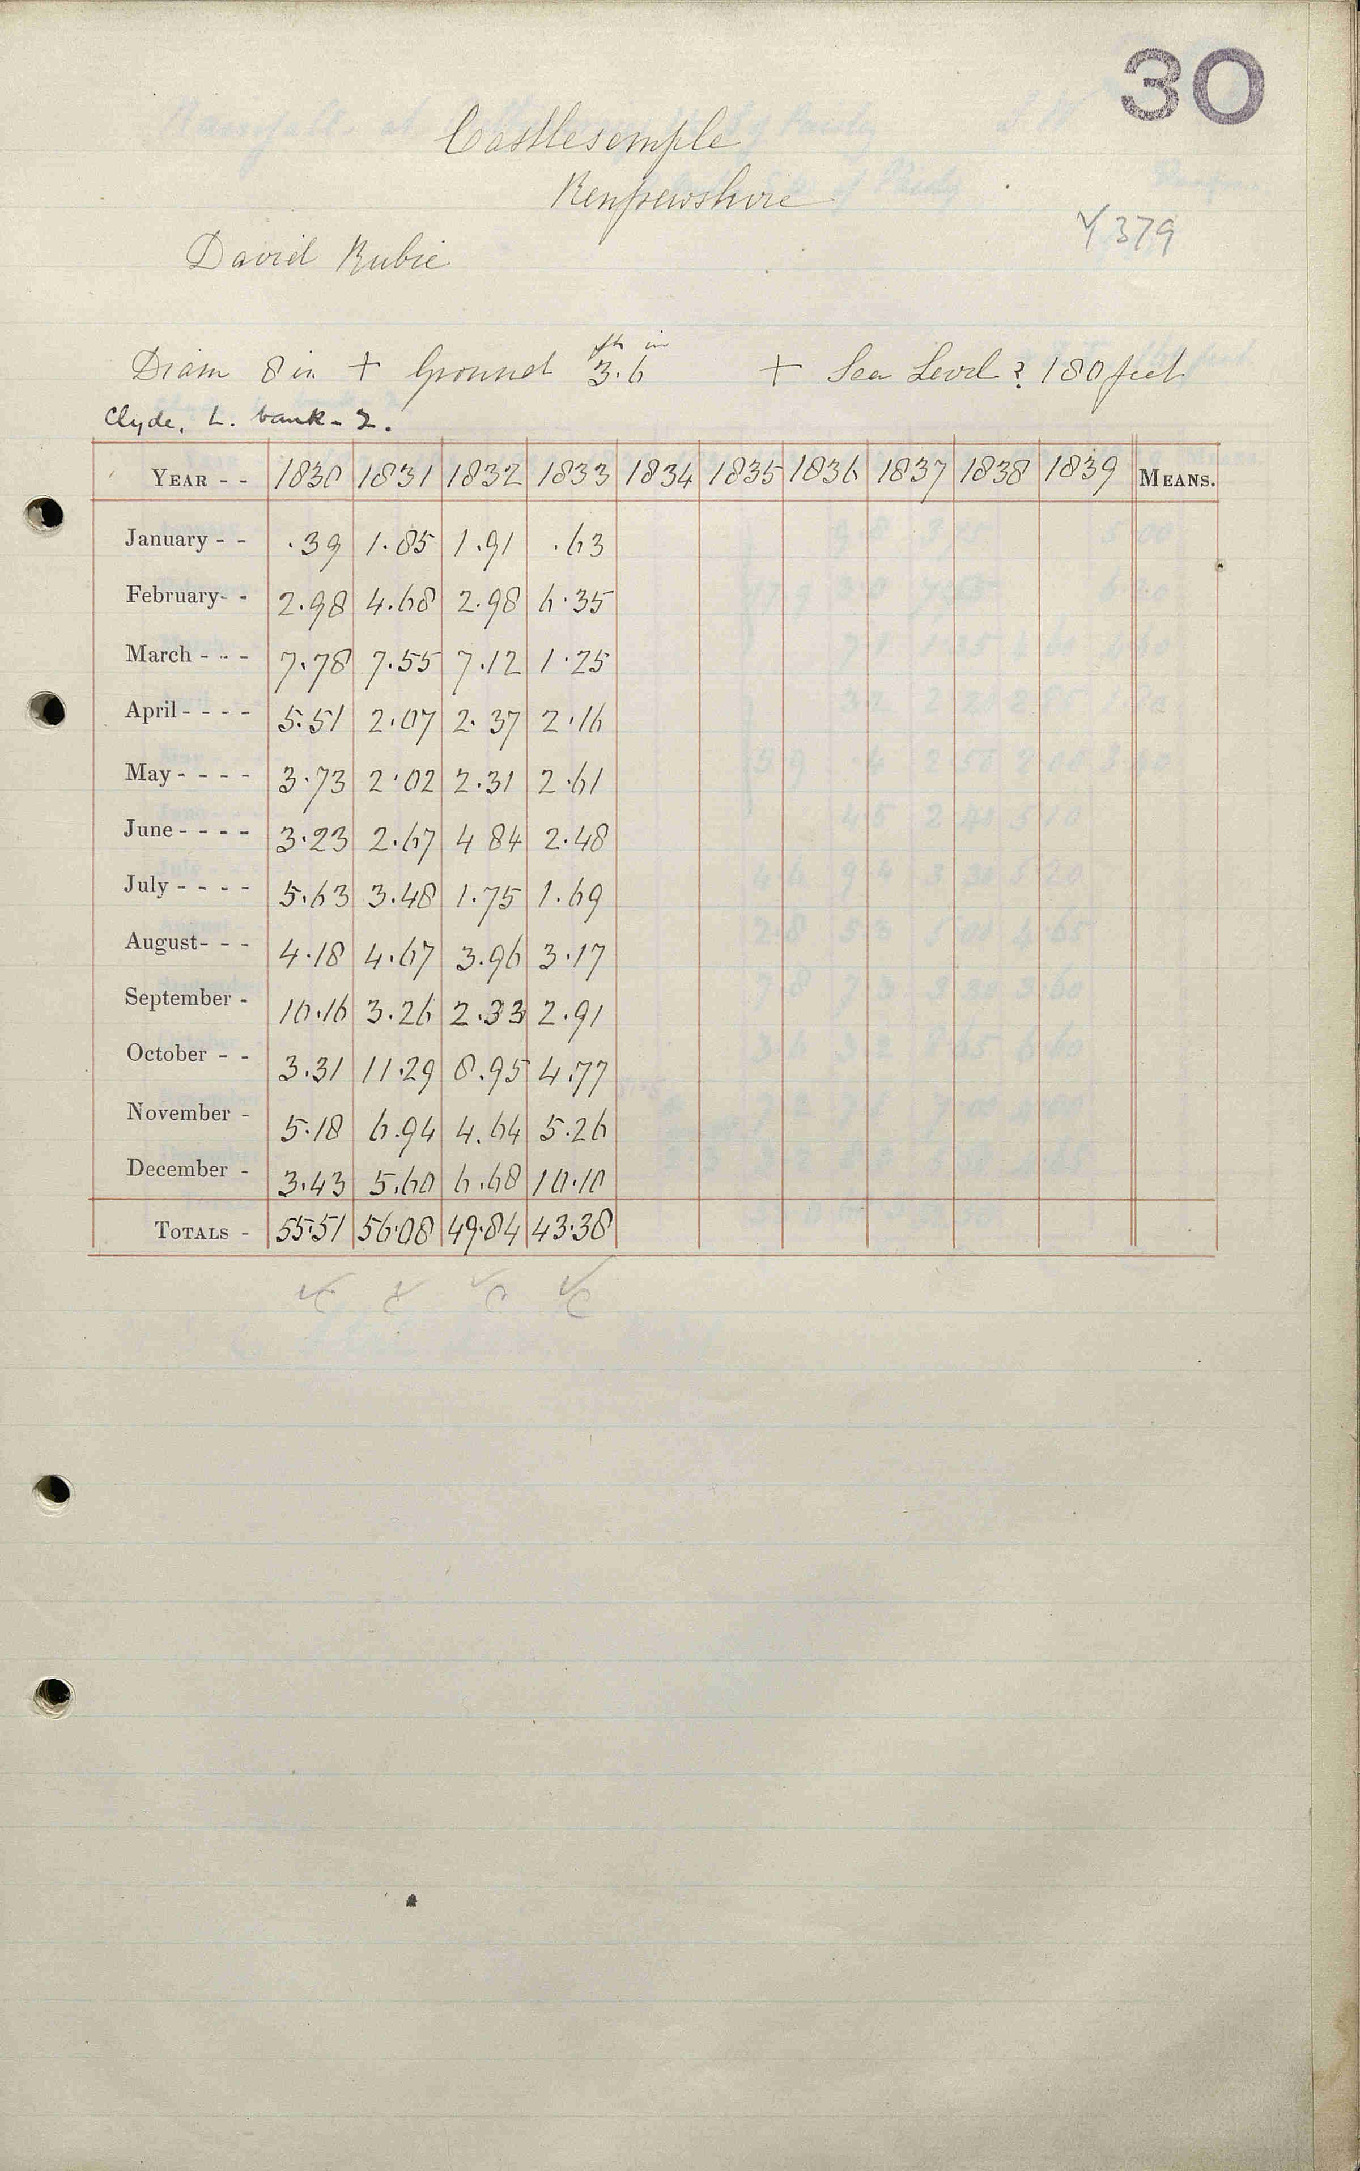 30
Castlesemple
Renfrewshire
4379
David Rubie
Diam 8 in + Ground 3.6 + Sea Level ? 180 feet
ft in
Clyde. L. bank - 2.
YEAR - - 1830 1831 1832 1833 1834 1835 1836 1837 1838 1839 MEANS.
January - - .39 1.85 1.91 .63
February- - 2.98 4.68 2.98 6.35
March - - - 7.78 7.55 7.12 1.25
April - - - - 5.51 2.07 2.37 2.16
May - - - - 3.73 2.02 2.31 2.61
June - - - - 3.23 2.67 4 84 2.48
July - - - - 5.63 3.48 1.75 1.69
August- - - 4.18 4.67 3.96 3.17
September - 10.16 3.26 2.33 2.91
October - - 3.31 11.29 8.95 4.77
November - 5.18 6.94 4.64 5.26
December - 3.43 5.60 6.68 10.10
TOTALS - 55.51 56.08 49.84 43.38